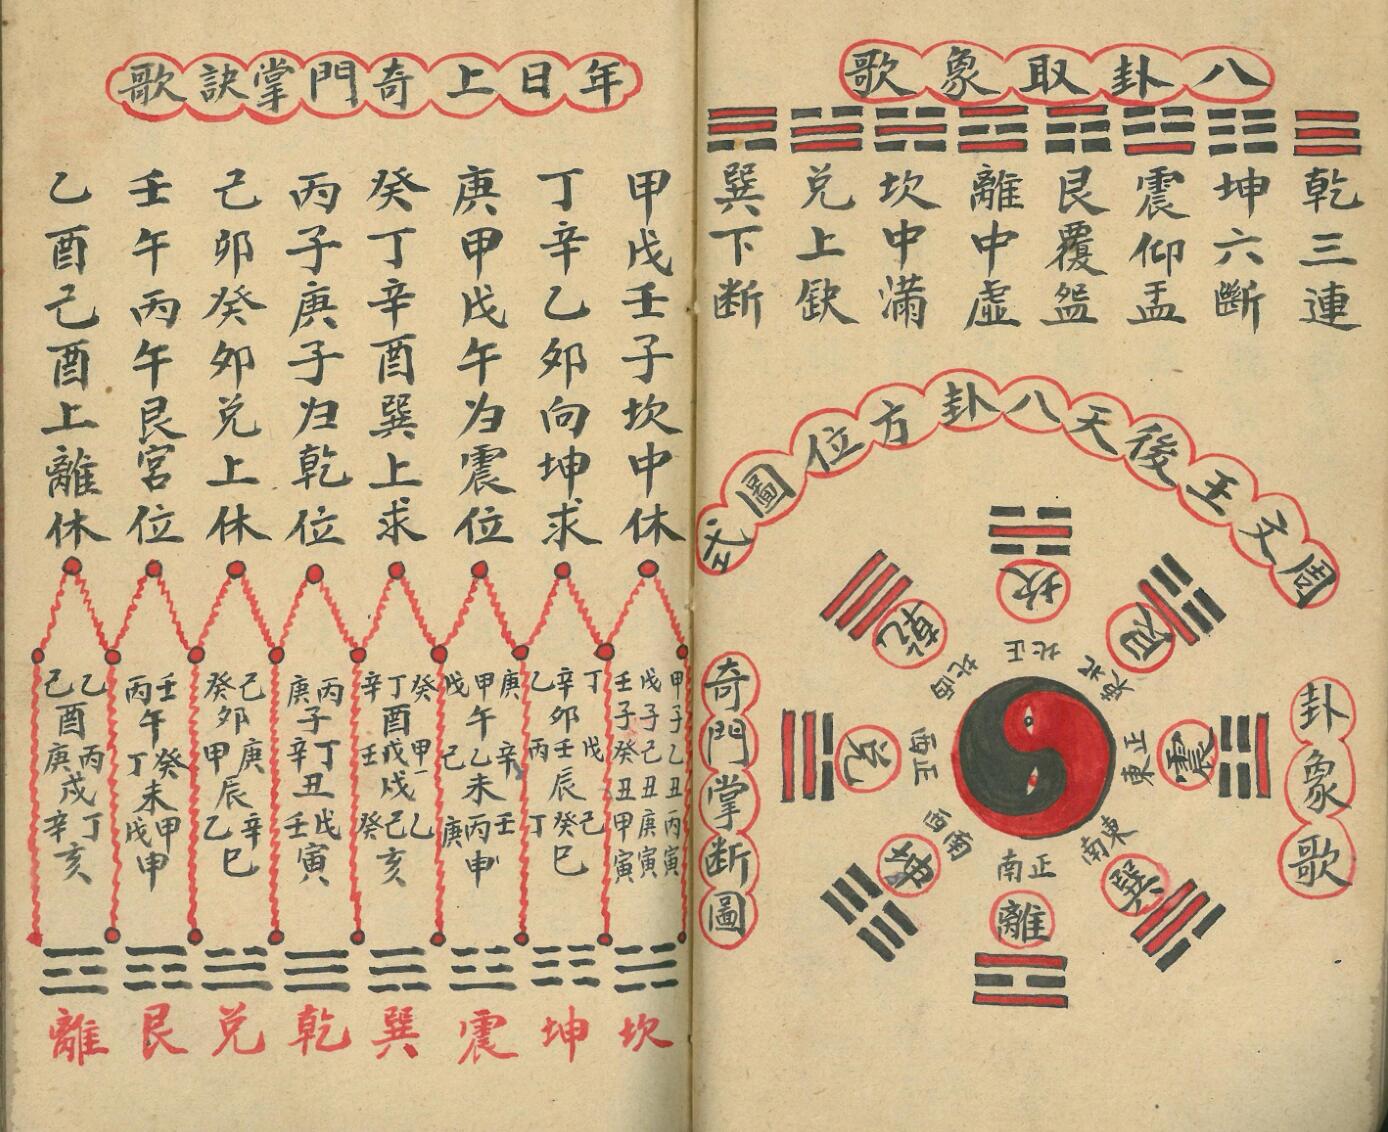 八卦取象歌
乾三連
坤六斷
震仰盂
艮覆盌
離中虛
坎中滿
兌上缺
巽下断
周文王後天八卦方位圖式
卦象歌
奇門掌断圖
坎
正北
艮
東北
震
正東
巽
東南
離
正南
坤
西南
兌
正西
乾
西北
年日上奇門掌訣歌
甲戊壬子坎中休
丁辛乙卯向坤求
庚甲戊午为震位
癸丁辛酉巽上求
丙子庚子归乾位
己卯癸卯兌上休
壬午丙午艮宮位
乙酉己酉上離休
甲子乙丑丙寅
戊子己丑庚寅
壬子癸丑甲寅
丁 戊 己
辛卯壬辰癸巳
乙 丙 丁
庚 辛 壬
甲午乙未丙申
戊 己 庚
癸 甲 乙
丁酉戊戌己亥
辛 壬 癸
丙 丁 戊
庚子辛丑壬寅
己 庚 辛
癸卯甲辰乙巳
壬 癸 甲
丙午丁未戊申
乙 丙 丁
己酉庚戌辛亥
坎
坤
震
巽
乾
兌
艮
離